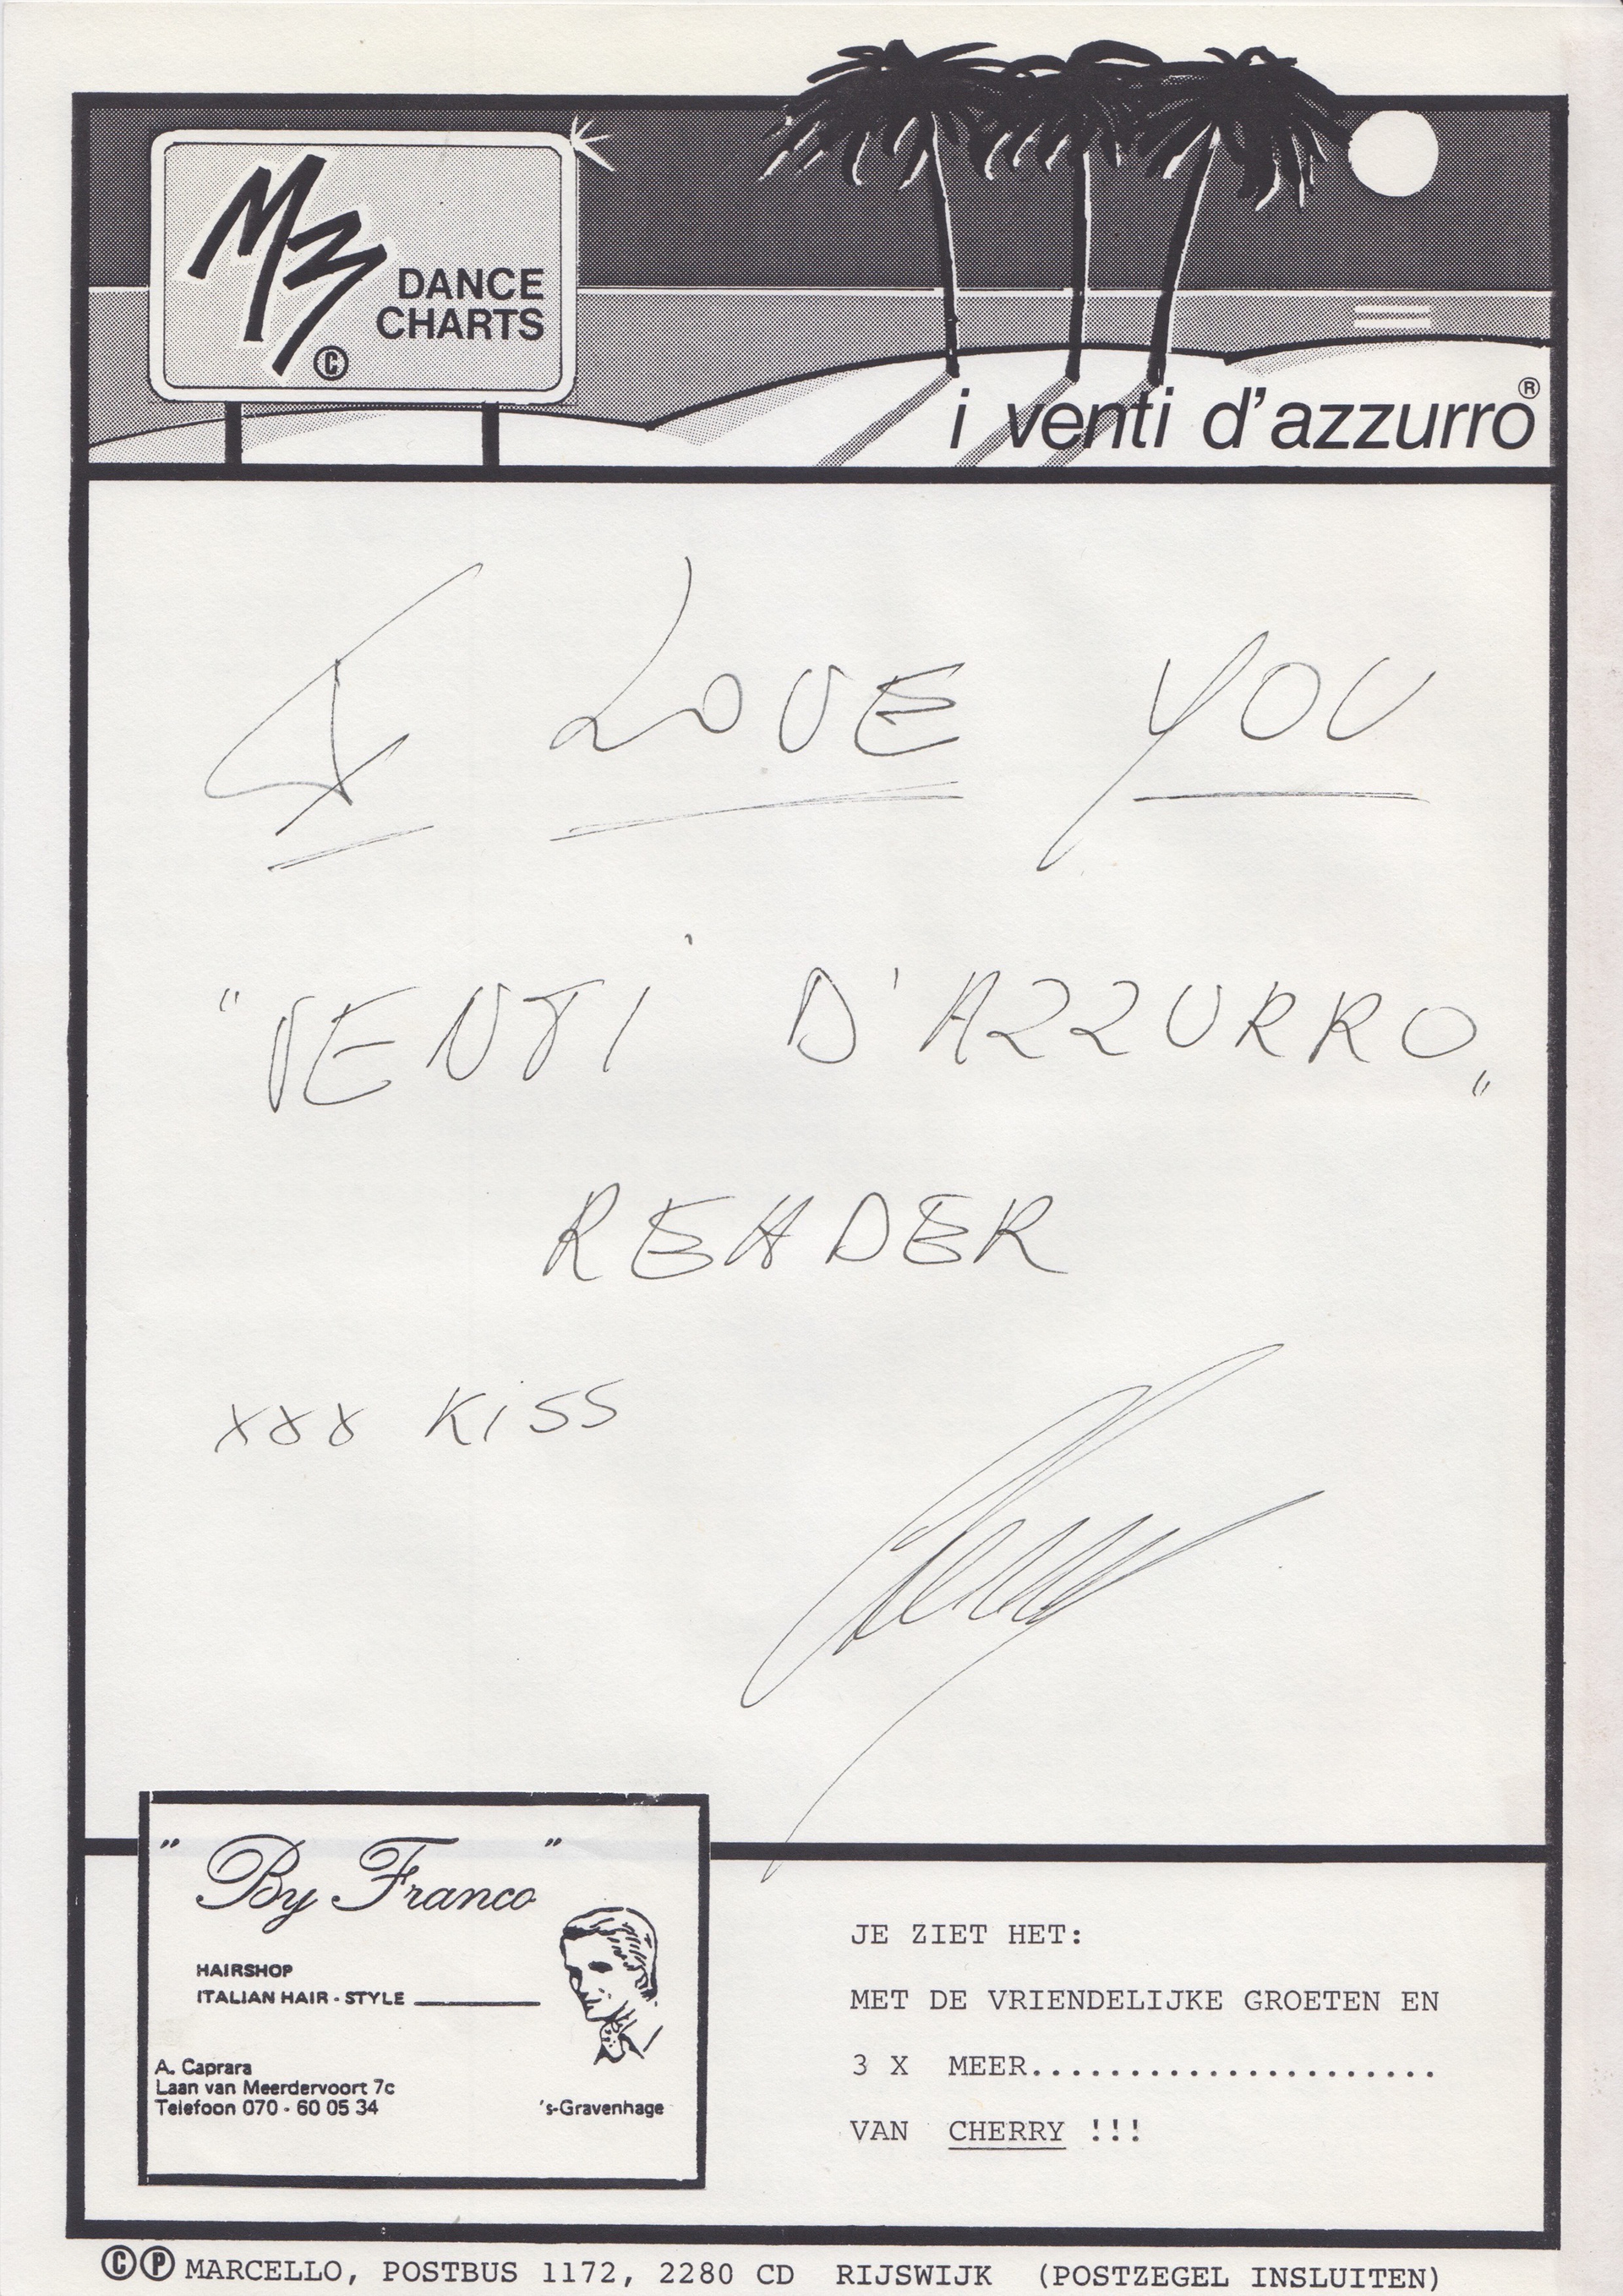 M3
DANCE
CHARTS
©
i venti d'azzurro®
I LOVE YOU
"VENTI D'AZZURRO„
READER
xxx KiSS
" By Franco "
HAIRSHOP
ITALIAN HAIR - STYLE
A. Caprara
Laan van Meerdervoort 7c
Telefoon 070 - 60 05 34
's-Gravenhage
JE ZIET HET:
MET DE VRIENDELIJKE GROETEN EN
3 X MEER.....................
VAN CHERRY !!!
©℗ MARCELLO, POSTBUS 1172, 2280 CD RIJSWIJK (POSTZEGEL INSLUITEN)